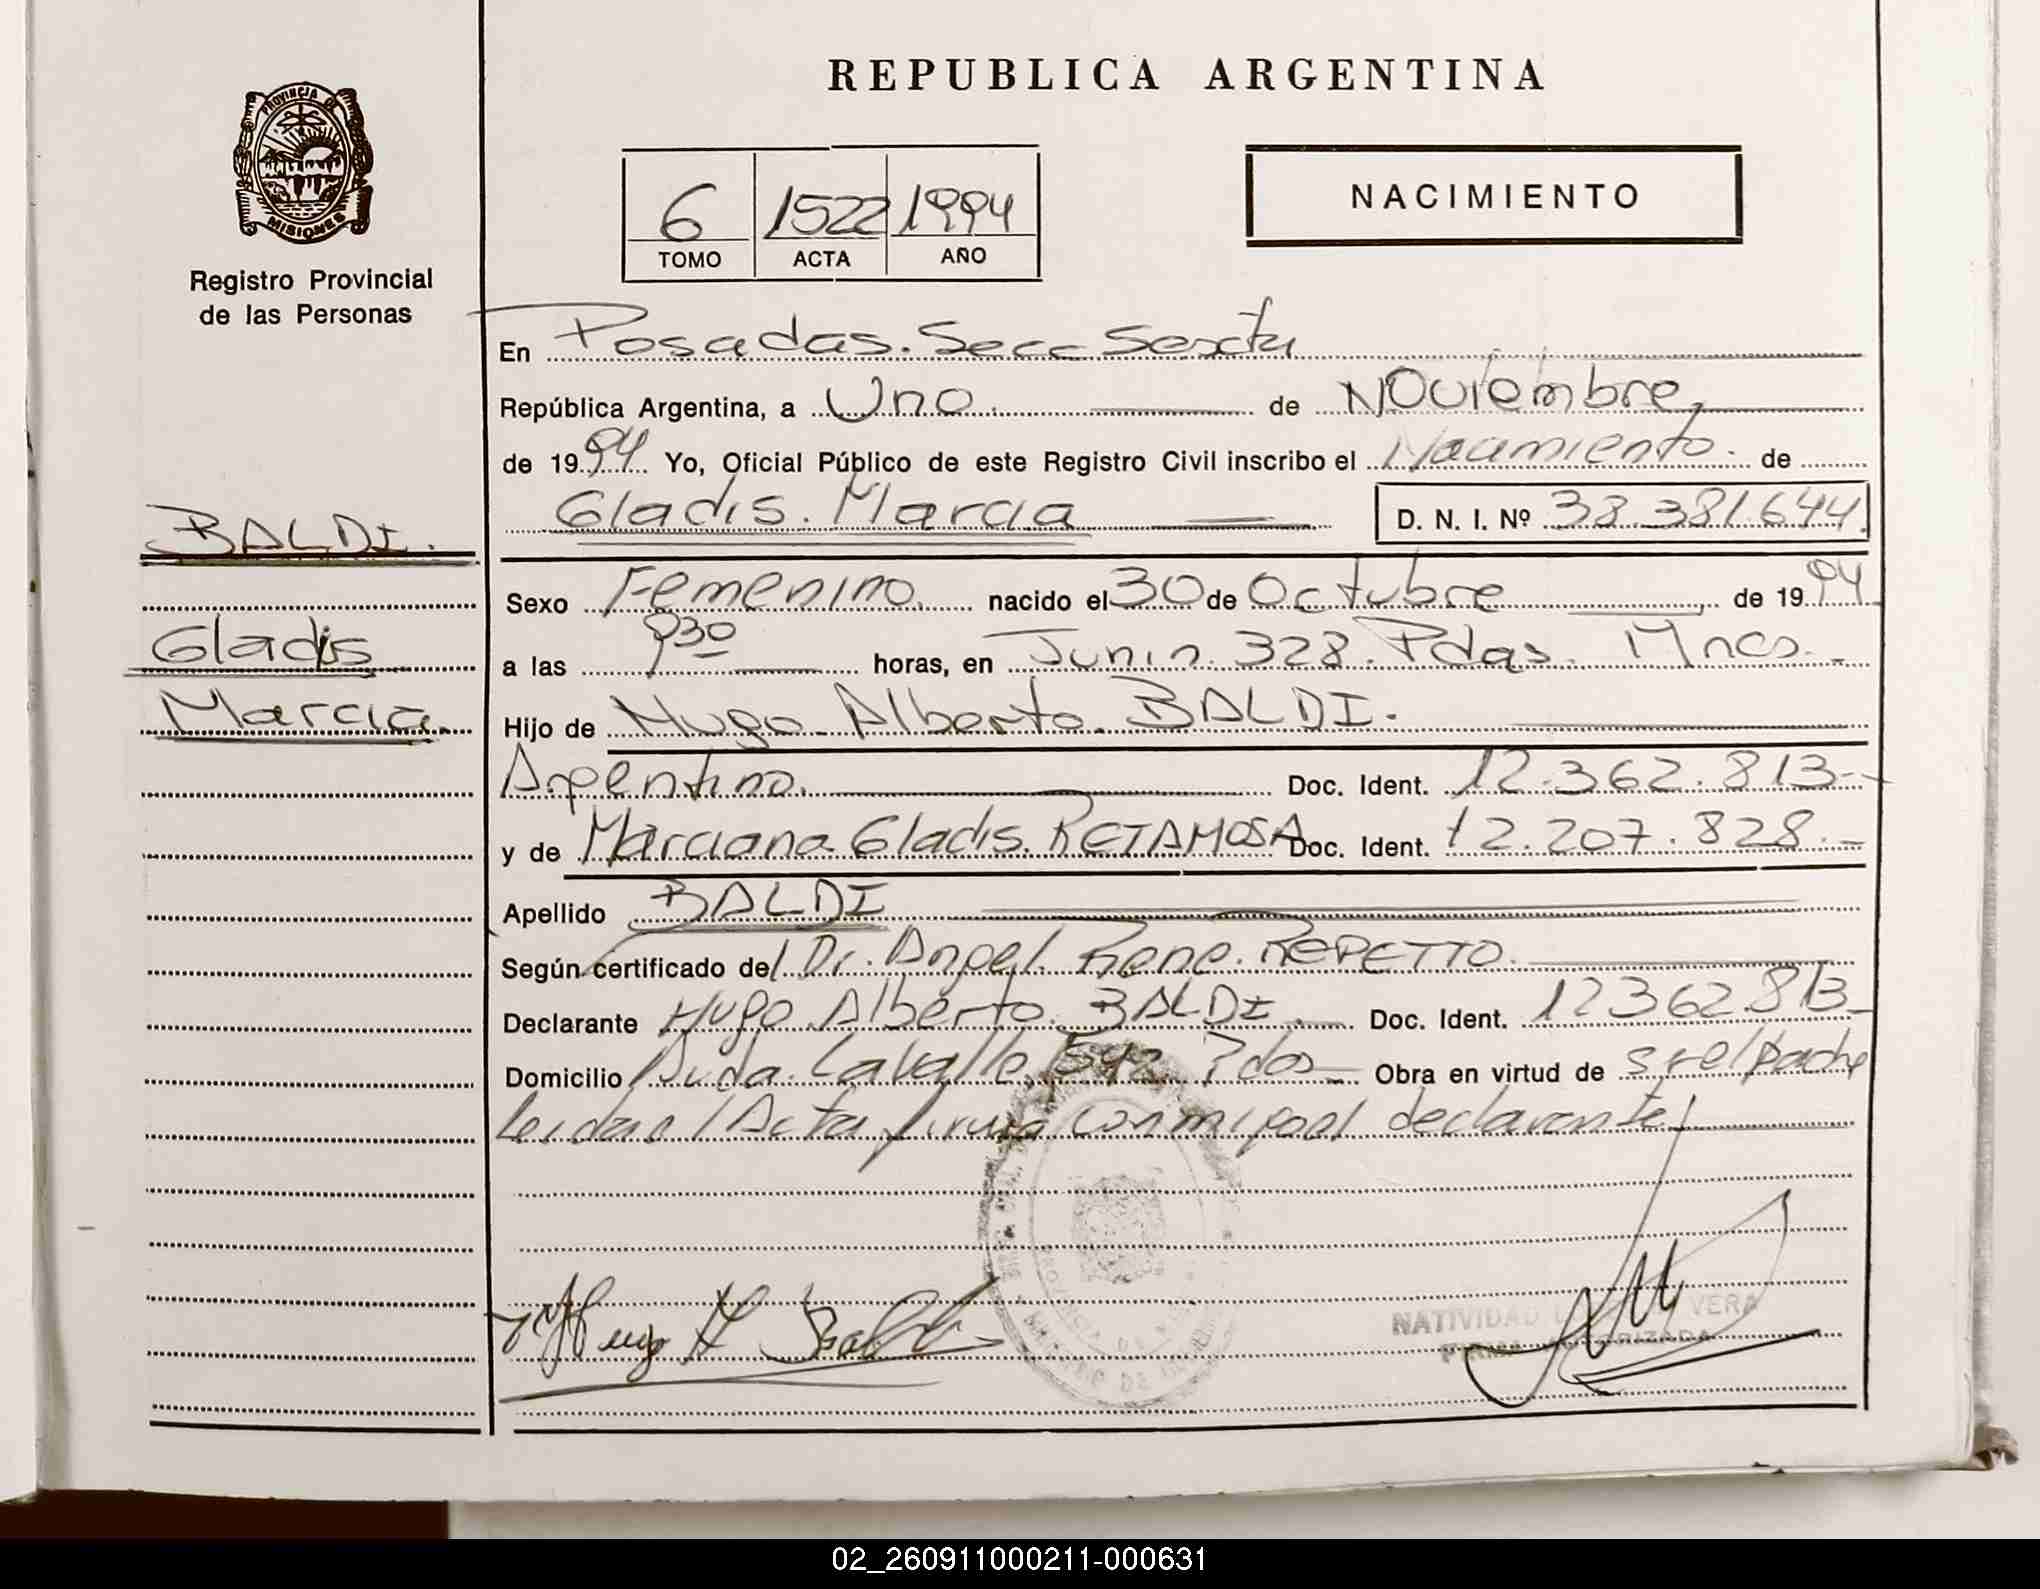 REPUBLICA ARGENTINA
PROVINCIA DE
MISIONES
Registro Provincial
de las Personas
6 1522 1994
TOMO ACTA AÑO
NACIMIENTO
En Posadas. Secc Sexta
República Argentina, a Uno. de Noviembre,
de 1994 Yo, Oficial Público de este Registro Civil inscribo el Nacimiento. de
Gladis. Marcia D. N. I. Nº 38.381.644.
BALDI.
Gladis
Marcia.
Sexo Femenino. nacido el 30 de Octubre de 1994
a las 930 horas, en Junin. 328. Pdas. Mnes.
Hijo de Hugo Alberto. BALDI.
Argentino. Doc. Ident. 12.362.813.-
y de Marciana Gladis. RETAMOSA Doc. Ident. 12.207.828.-
Apellido BALDI
Según certificado del Dr. Angel. Rene. REPETTO.
Declarante Hugo. Alberto. BALDI. Doc. Ident. 12362.813-
Domicilio Avda. Lavalle 542 Pdas- Obra en virtud de
Leida el Acta firma conmigo el declarante
Hugo A Baldi
NATIVIDAD VERA
FIRMA AUTORIZADA
02_260911000211-000631